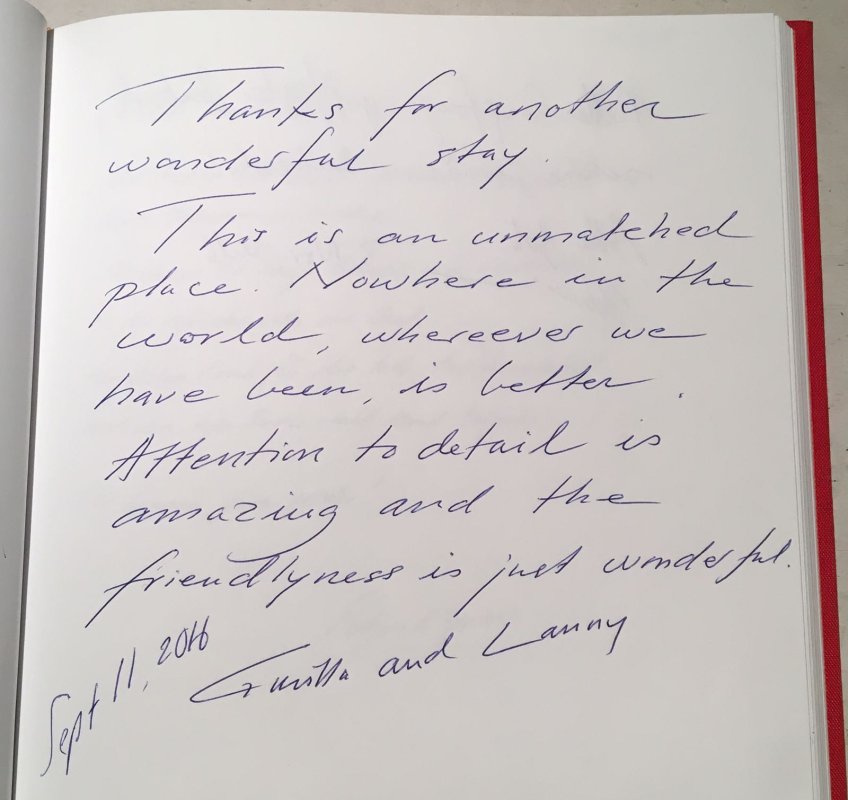 Thanks for another
wonderful stay.
This is an unmatched
place. Nowhere in the
world, whereever we
have been, is better.
Attention to detail is
amazing and the
friendlyness is just wonderful.
and Lanny
Sept 11, 2016